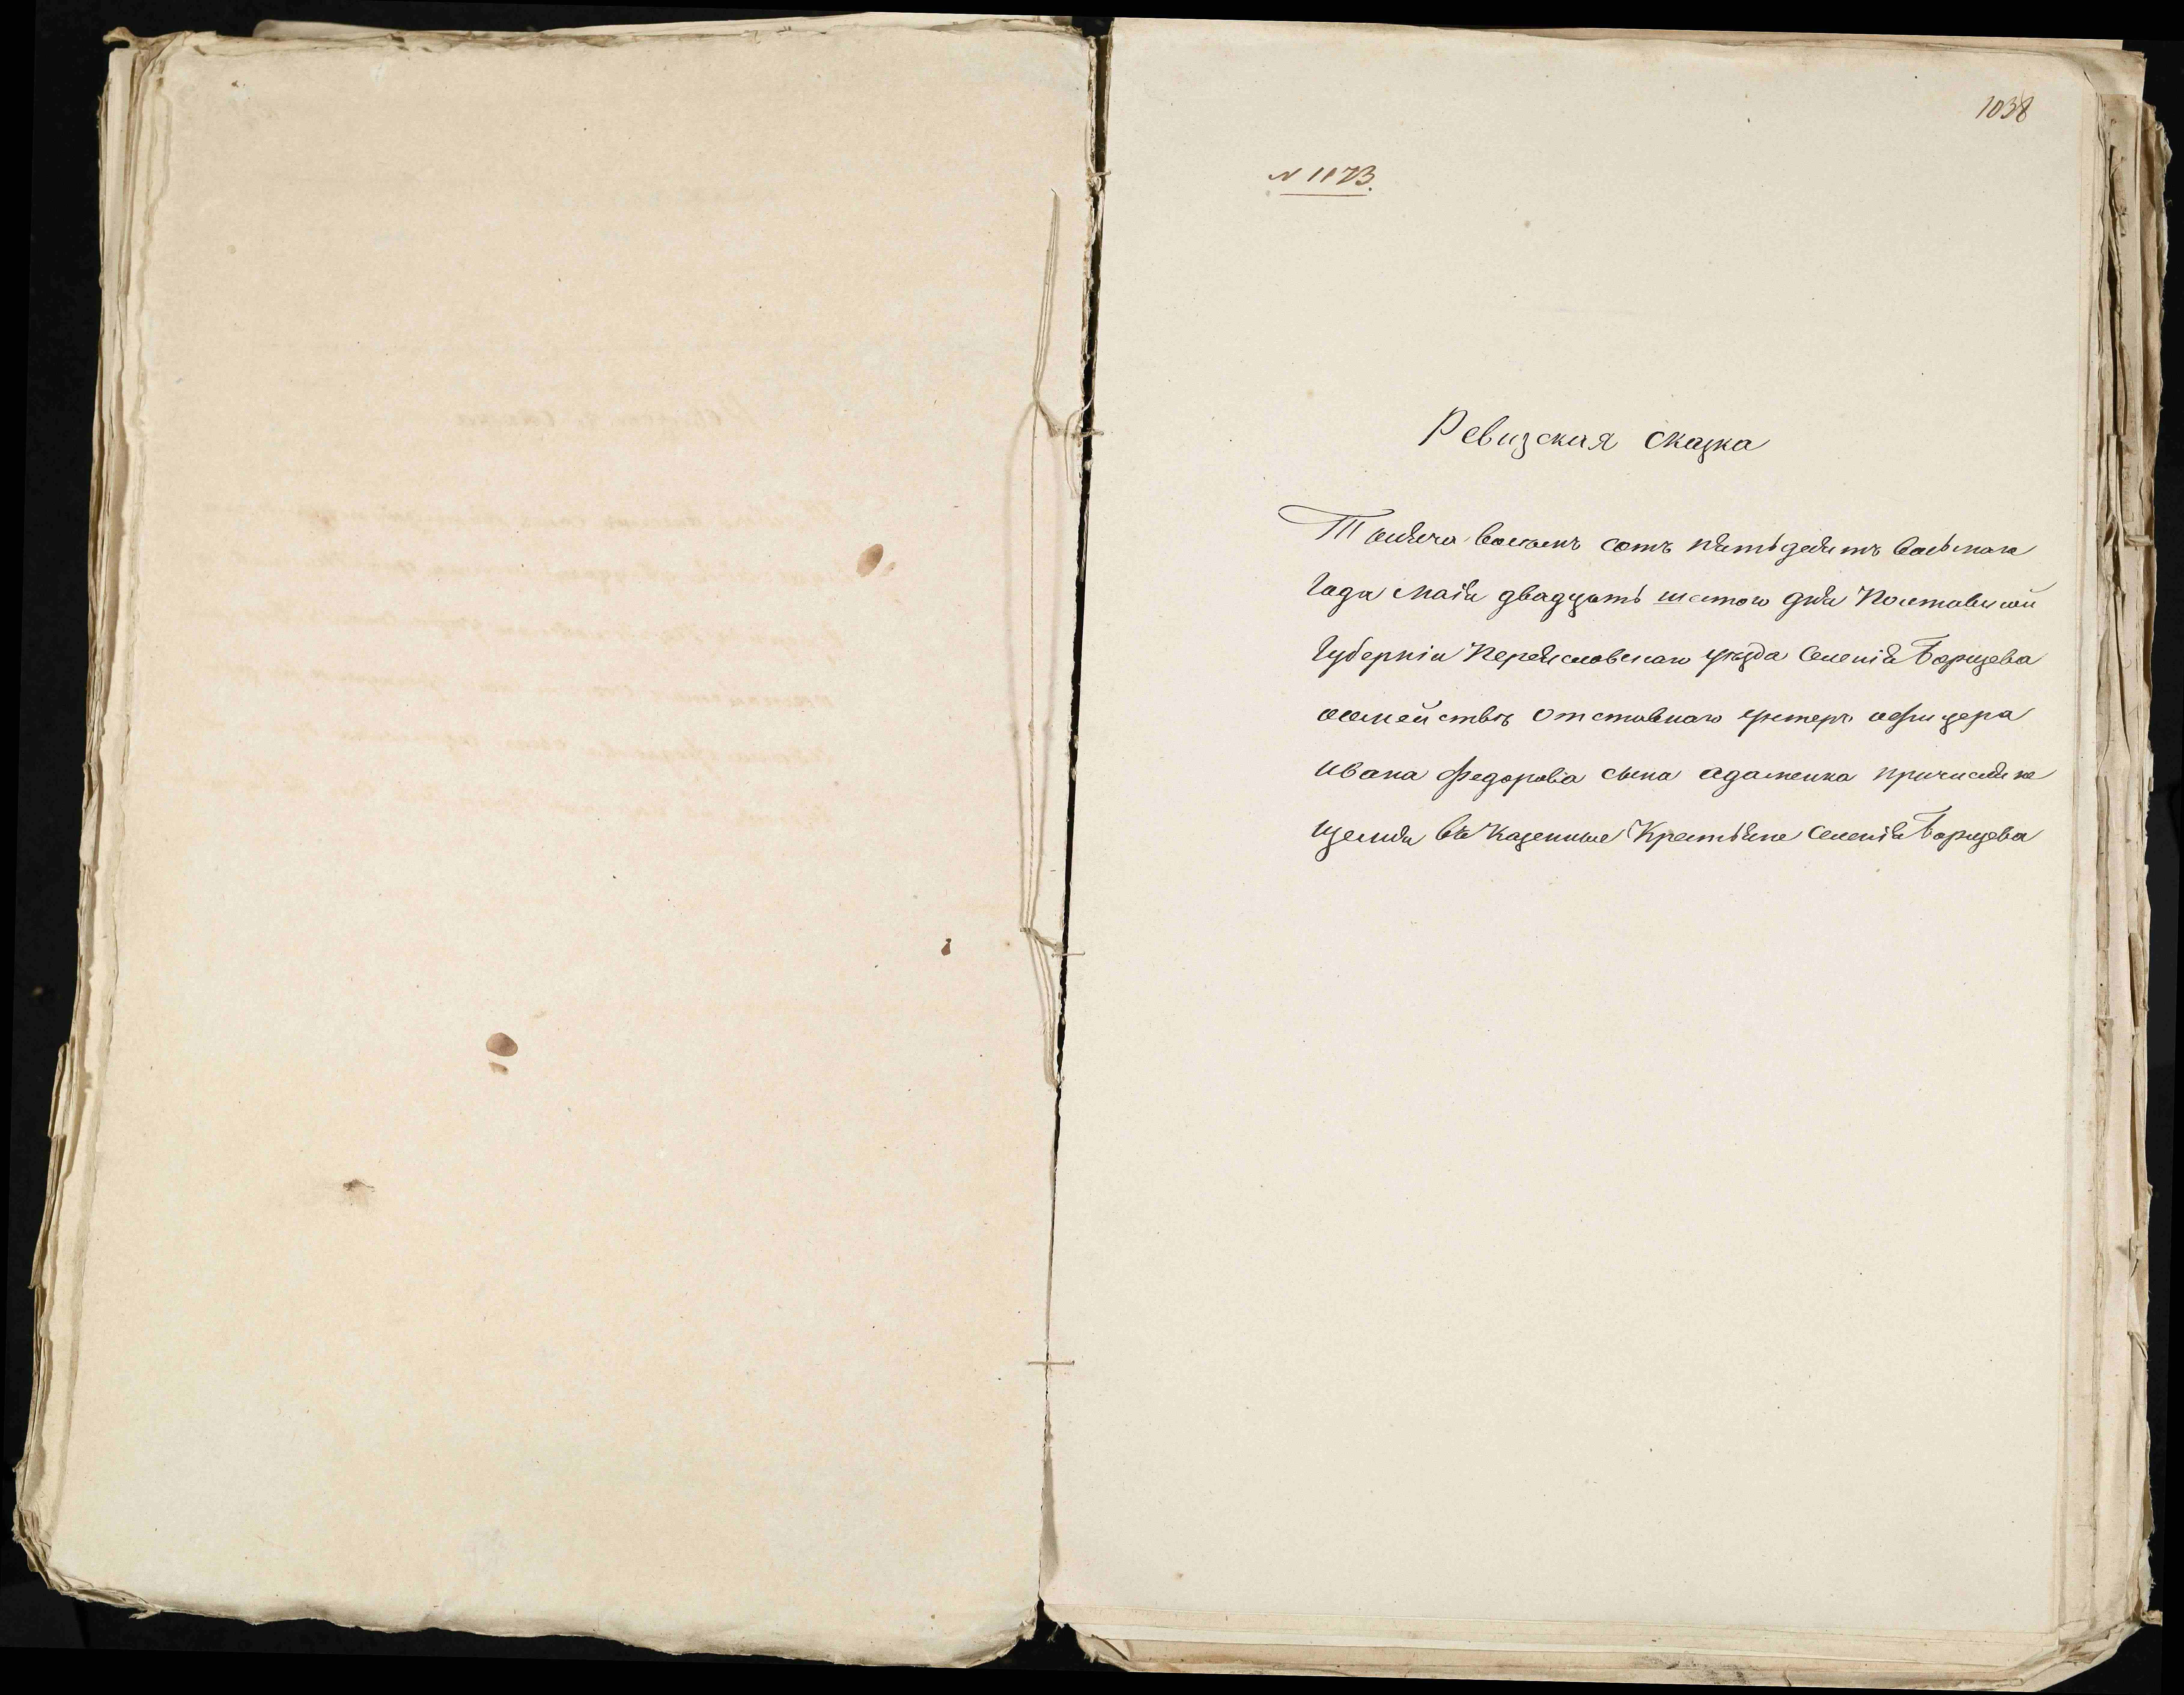 1038
N 1173.
Ревизская сказка
Тысяча восемь сотъ пятьдесятъ восьмого
Года Маія двадцать шестого дня Полтавской
Губерніи Переяславскаго уезда Селенія Борщева
осемействѣ Отставнаго унтеръ афицера
Ивана Федорова сына Адаменка причисляю
щемся въ Казенные Крестьяне Селенія Борщева